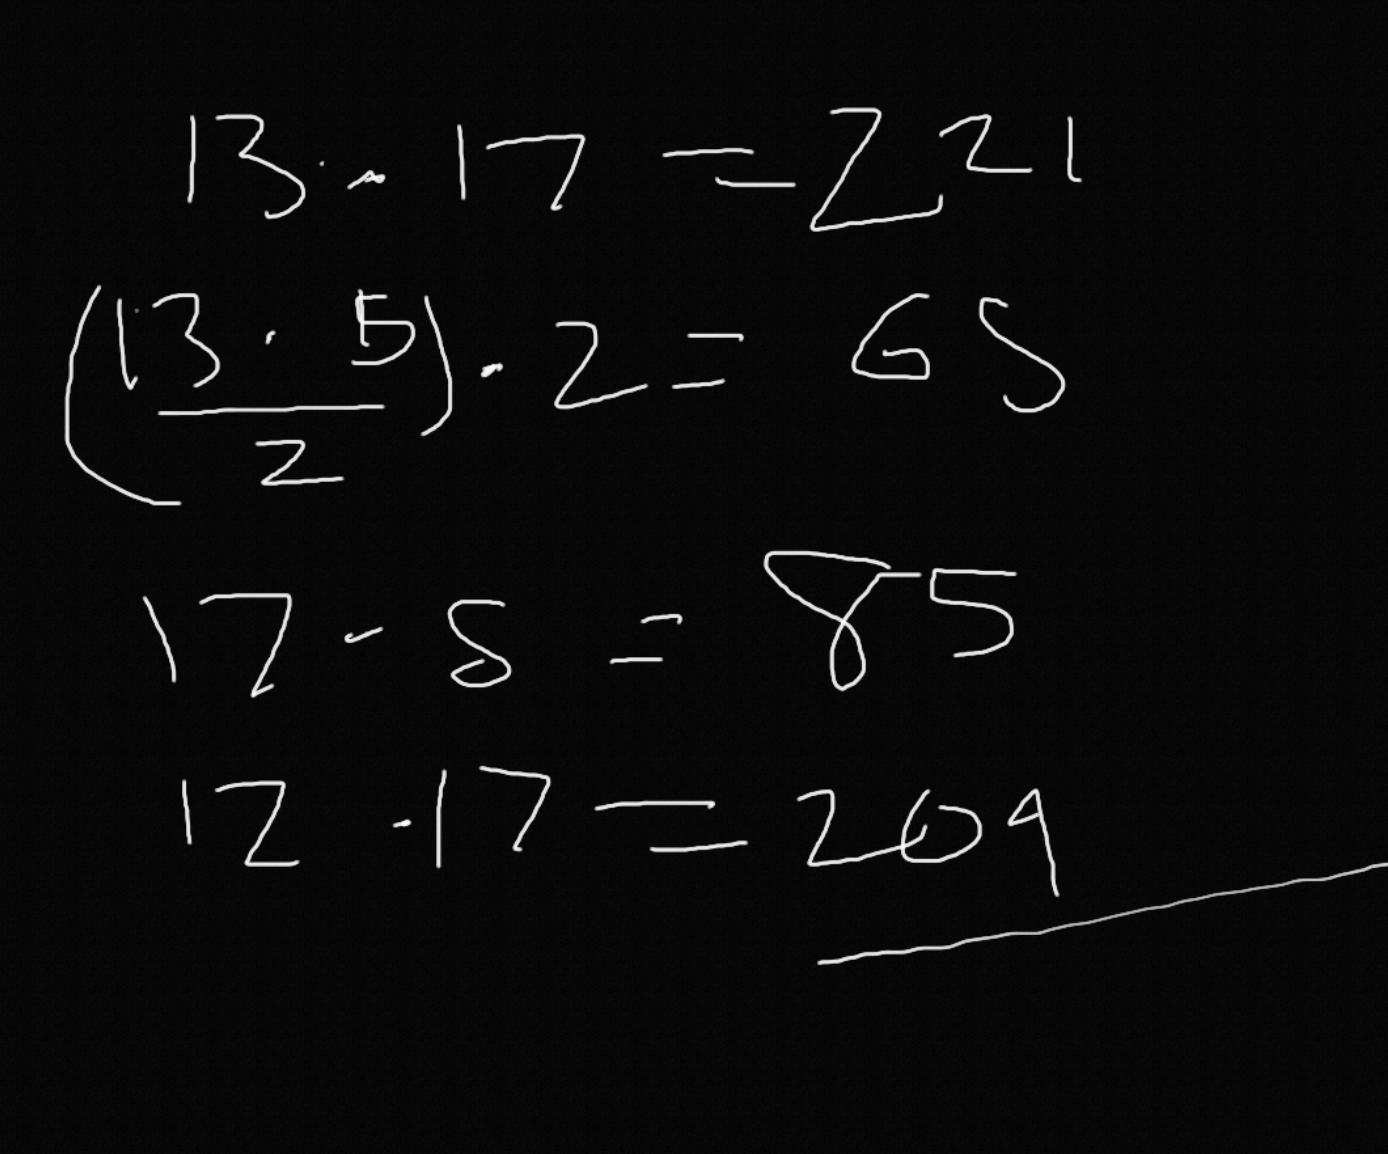 13 · 17 = 221
(13 · 5 / 2) · 2 = 65
17 · 5 = 85
12 · 17 = 204